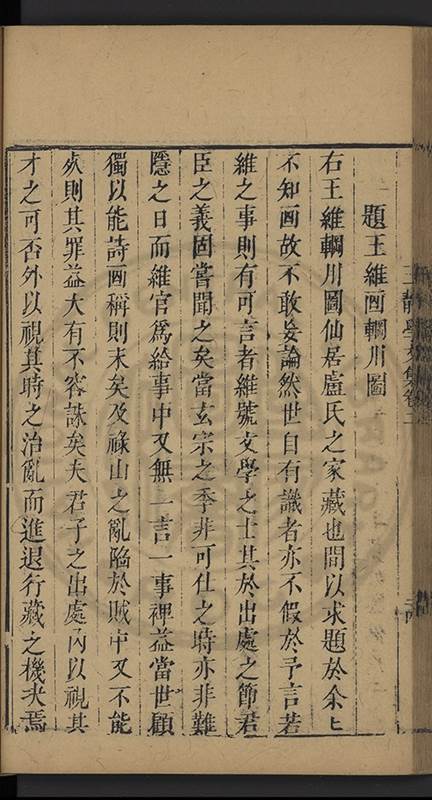 題王維画輞川圖
右王維輞川圖仙居盧氏之家藏也間以求題於余
不知画故不敢妄論然世自有識者亦不假於予言若
維之事則有可言者維號文學之士其於出處之節君
臣之義固嘗聞之矣當玄宗之季非可仕之時亦非難
隱之日而維官爲給事中又無一言一事裨益當世顧
獨以能詩画稱則末矣及祿山之亂陷於賊中又不能
死則其罪益大有不容誅矣夫君子之出處内以視其
才之可否外以視其時之治亂而進退行藏之機决焉